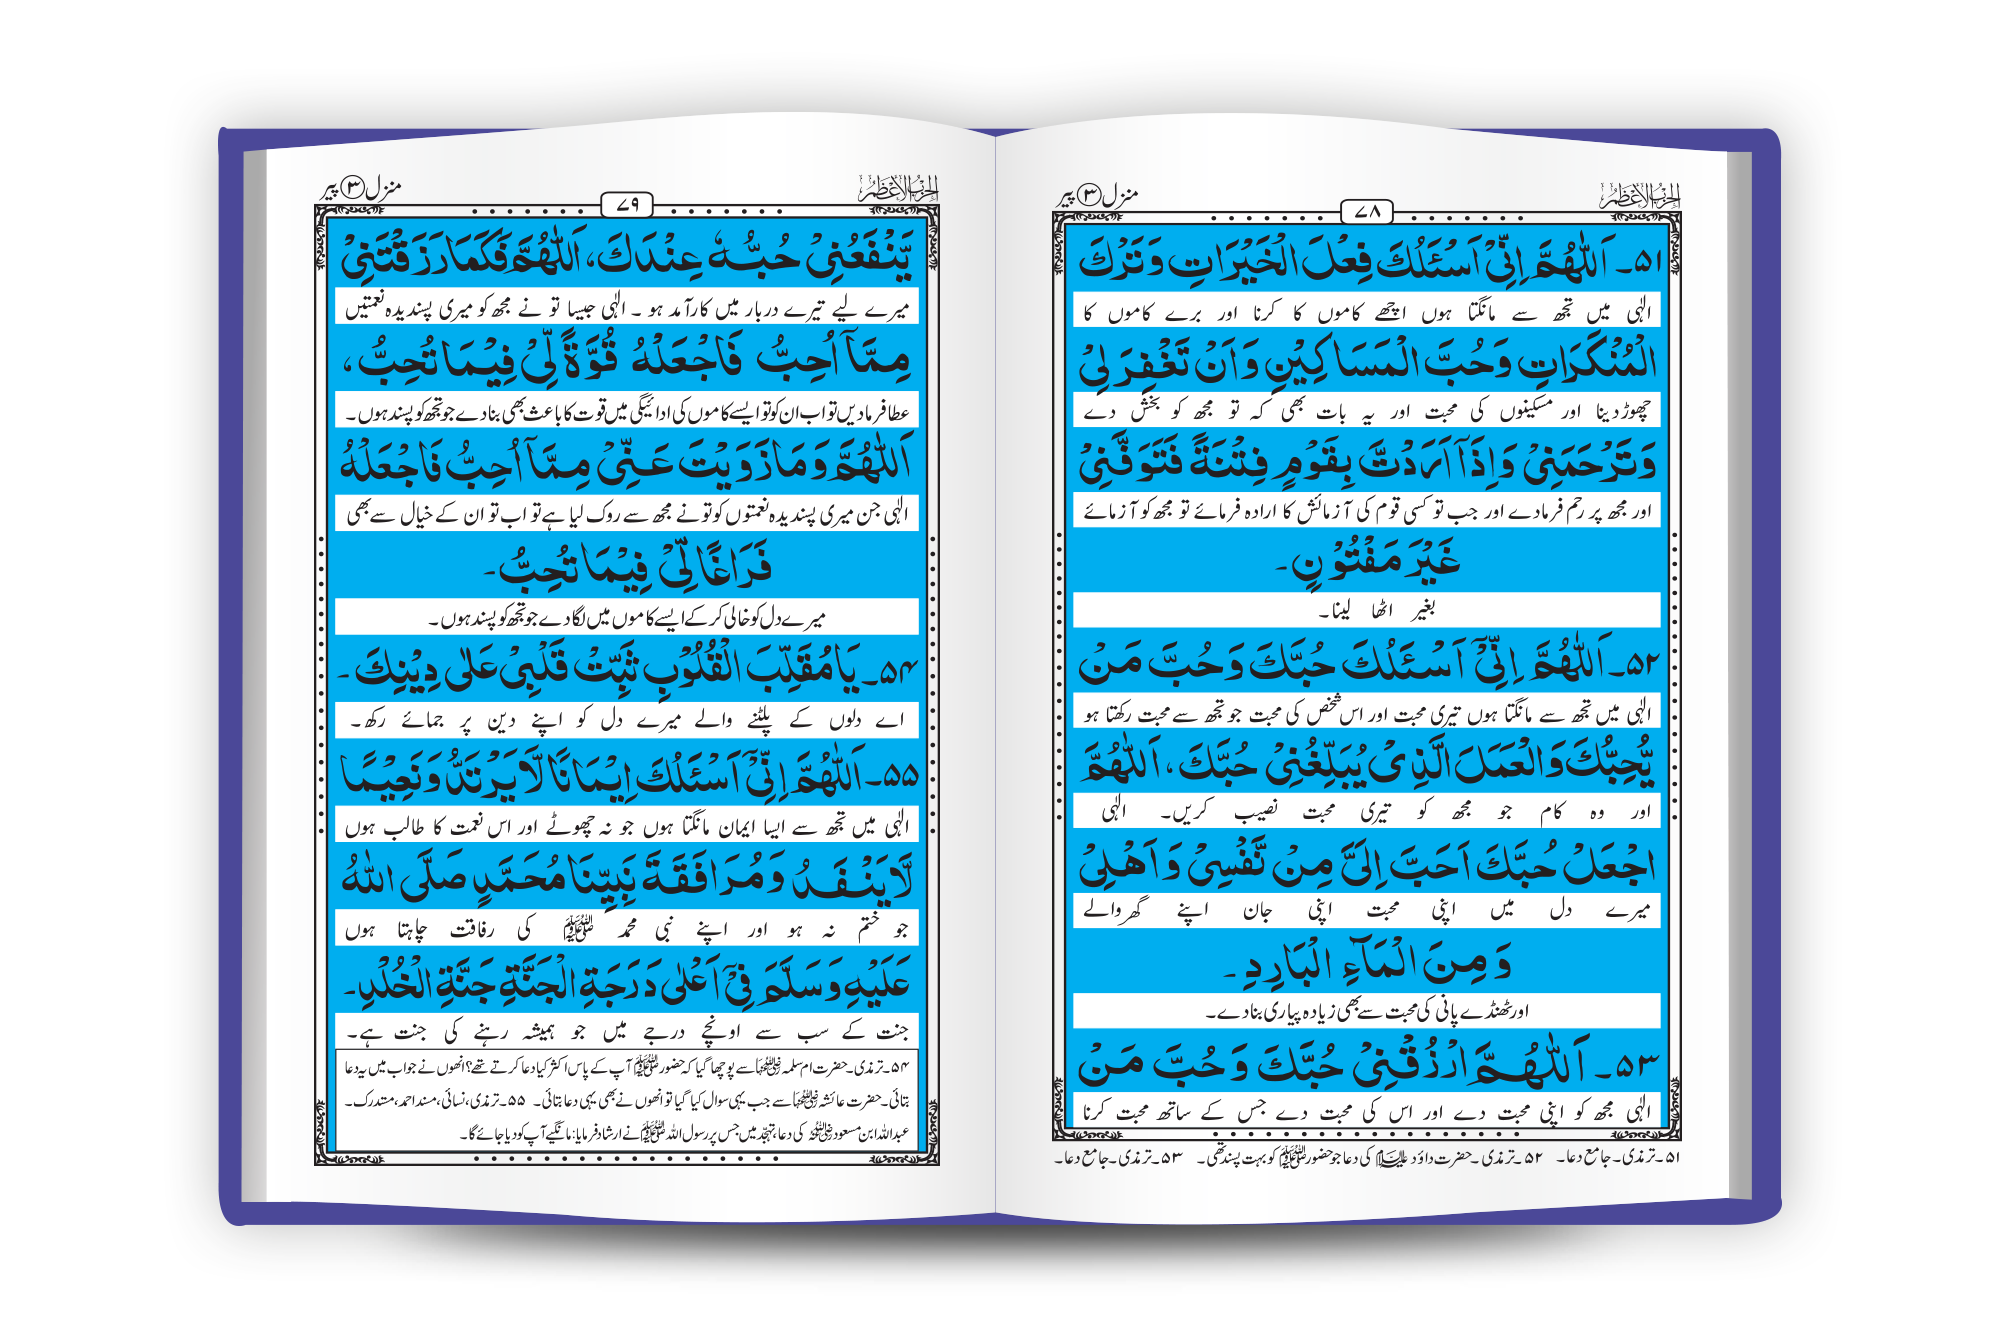 الحزب الاعظم
۷۸
منزل ۳ پیر
۵۱۔ اَللّٰهُمَّ اِنِّیْۤ اَسْئَلُكَ فِعْلَ الْخَیْرَاتِ وَتَرْكَ
الٰہی میں تجھ سے مانگتا ہوں اچھے کاموں کا کرنا اور برے کاموں کا
الْمُنْكَرَاتِ وَحُبَّ الْمَسَاكِیْنِ وَاَنْ تَغْفِرَ لِیْ
چھوڑ دینا اور مسکینوں کی محبت اور یہ بات بھی کہ تو مجھ کو بخش دے
وَتَرْحَمَنِیْ وَاِذَاۤ اَرَدْتَّ بِقَوْمٍ فِتْنَةً فَتَوَفَّنِیْ
اور مجھ پر رحم فرمادے اور جب تو کسی قوم کی آزمائش کا ارادہ فرمائے تو مجھ کو آزمائے
غَیْرَ مَفْتُوْنٍ۔
بغیر اٹھا لینا۔
۵۲۔ اَللّٰهُمَّ اِنِّیْۤ اَسْئَلُكَ حُبَّكَ وَحُبَّ مَنْ
الٰہی میں تجھ سے مانگتا ہوں تیری محبت اور اس شخص کی محبت جو تجھ سے محبت رکھتا ہو
یُّحِبُّكَ وَالْعَمَلَ الَّذِیْ یُبَلِّغُنِیْ حُبَّكَ، اَللّٰهُمَّ
اور وہ کام جو مجھ کو تیری محبت نصیب کریں۔ الٰہی
اجْعَلْ حُبَّكَ اَحَبَّ اِلَیَّ مِنْ نَّفْسِیْ وَاَهْلِیْ
میرے دل میں اپنی محبت اپنی جان اپنے گھر والے
وَمِنَ الْمَآءِ الْبَارِدِ۔
اور ٹھنڈے پانی کی محبت سے بھی زیادہ پیاری بنادے۔
۵۳۔ اَللّٰهُمَّ ارْزُقْنِیْ حُبَّكَ وَحُبَّ مَنْ
الٰہی مجھ کو اپنی محبت دے اور اس کی محبت دے جس کے ساتھ محبت کرنا
۵۱۔ترمذی۔جامع دعا۔ ۵۲۔ترمذی۔حضرت داؤد علیہ السلام کی دعا جو حضور ﷺ کو بہت پسند تھی۔ ۵۳۔ترمذی۔جامع دعا۔
الحزب الاعظم
۷۹
منزل ۳ پیر
یَّنْفَعُنِیْ حُبُّهٗ عِنْدَكَ، اَللّٰهُمَّ فَكَمَا رَزَقْتَنِیْ
میرے لیے تیرے دربار میں کارآمد ہو ۔ الٰہی جیسا تو نے مجھ کو میری پسندیدہ نعمتیں
مِمَّاۤ اُحِبُّ فَاجْعَلْهُ قُوَّةً لِّیْ فِیْمَا تُحِبُّ،
عطا فرمادیں تو اب ان کو تو ایسے کاموں کی ادائیگی میں قوت کا باعث بھی بنادے جو تجھ کو پسند ہوں۔
اَللّٰهُمَّ وَمَا زَوَیْتَ عَنِّیْ مِمَّاۤ اُحِبُّ فَاجْعَلْهُ
الٰہی جن میری پسندیدہ نعمتوں کو تو نے مجھ سے روک لیا ہے تو اب تو ان کے خیال سے بھی
فَرَاغًا لِّیْ فِیْمَا تُحِبُّ۔
میرے دل کو خالی کر کے ایسے کاموں میں لگادے جو تجھ کو پسند ہوں۔
۵۴۔ یَا مُقَلِّبَ الْقُلُوْبِ ثَبِّتْ قَلْبِیْ عَلٰی دِیْنِكَ۔
اے دلوں کے پلٹنے والے میرے دل کو اپنے دین پر جمائے رکھ۔
۵۵۔ اَللّٰهُمَّ اِنِّیْۤ اَسْئَلُكَ اِیْمَانًا لَّا یَرْتَدُّ وَنَعِیْمًا
الٰہی میں تجھ سے ایسا ایمان مانگتا ہوں جو نہ چھوٹے اور اس نعمت کا طالب ہوں
لَّا یَنْفَدُ وَمُرَافَقَةَ نَبِیِّنَا مُحَمَّدٍ صَلَّی اللّٰهُ
جو ختم نہ ہو اور اپنے نبی محمد ﷺ کی رفاقت چاہتا ہوں
عَلَیْهِ وَسَلَّمَ فِیْۤ اَعْلٰی دَرَجَةِ الْجَنَّةِ جَنَّةِ الْخُلْدِ۔
جنت کے سب سے اونچے درجے میں جو ہمیشہ رہنے کی جنت ہے۔
۵۴۔ترمذی۔حضرت ام سلمہ رضی اللہ عنہا سے پوچھا گیا کہ حضور ﷺ آپ کے پاس اکثر کیا دعا کرتے تھے؟ انھوں نے جواب میں یہ دعا
بتائی۔حضرت عائشہ رضی اللہ عنہا سے جب یہی سوال کیا گیا تو انھوں نے بھی یہی دعا بتائی۔ ۵۵۔ترمذی،نسائی،مسند احمد،مستدرک۔
عبداللہ ابن مسعود رضی اللہ عنہ کی دعا،تہجّد میں جس پر رسول اللہ ﷺ نے ارشاد فرمایا:مانگیے آپ کو دیا جائے گا۔